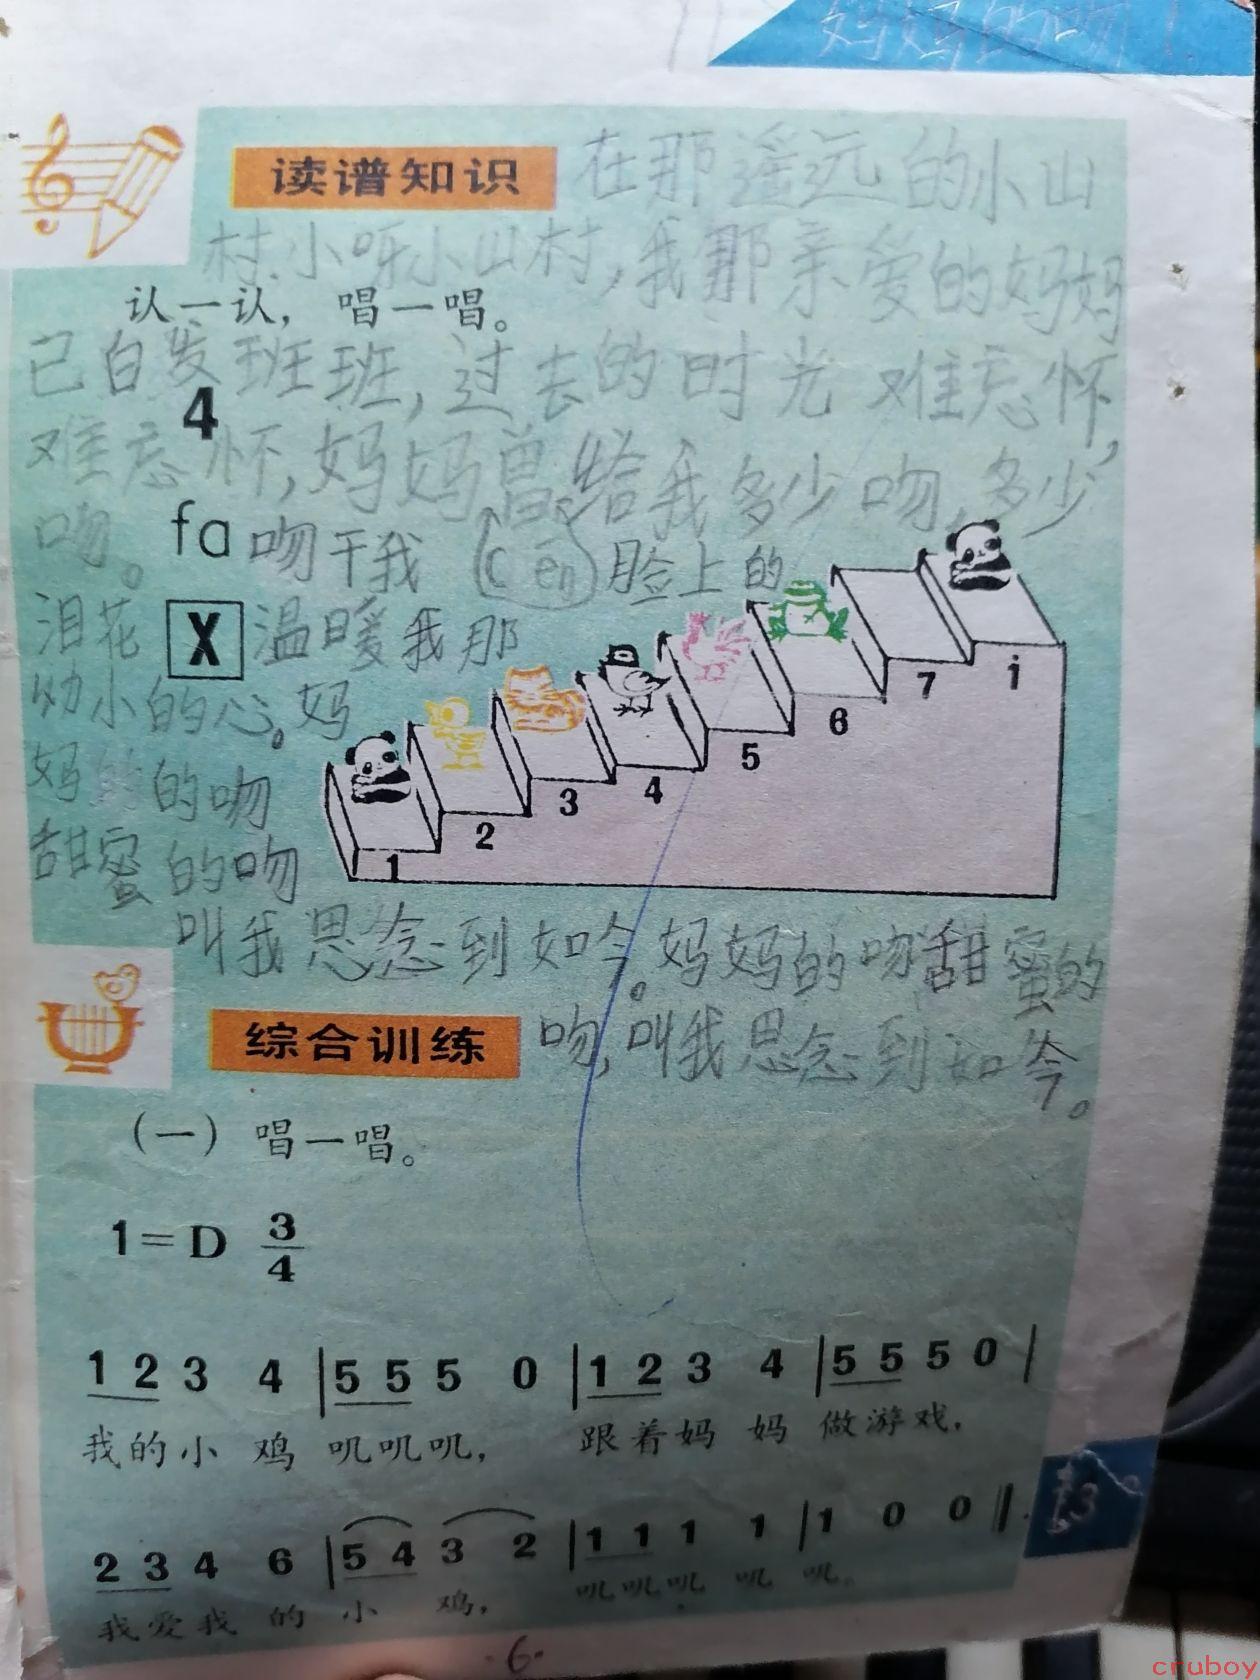 妈妈的吻
读谱知识 在那遥远的小山
村,小呀小山村,我那亲爱的妈妈
认一认， 唱一唱。
已白发班班,过去的时光难忘怀,
4
难忘怀,妈妈曾给我多少吻,多少
吻。
fa 吻干我 (cén) 脸上的
泪花 X 温暖我那
幼小的心。妈
妈的的吻
甜蜜的吻
1 2 3 4 5 6 7 i
叫我思念到如今。妈妈的吻甜蜜的
综合训练 吻,叫我思念到如今。
（一） 唱一唱。
1=D 3/4
1 2 3 4 | 5 5 5 0 | 1 2 3 4 | 5 5 5 0 |
我的小 鸡 叽叽叽， 跟着妈 妈 做游戏，
2 3 4 6 | 5 4 3 2 | 1 1 1 1 | 1 0 0 ‖
我爱我 的 小 鸡， 叽叽叽 叽 叽。
13
·6·
cruboy